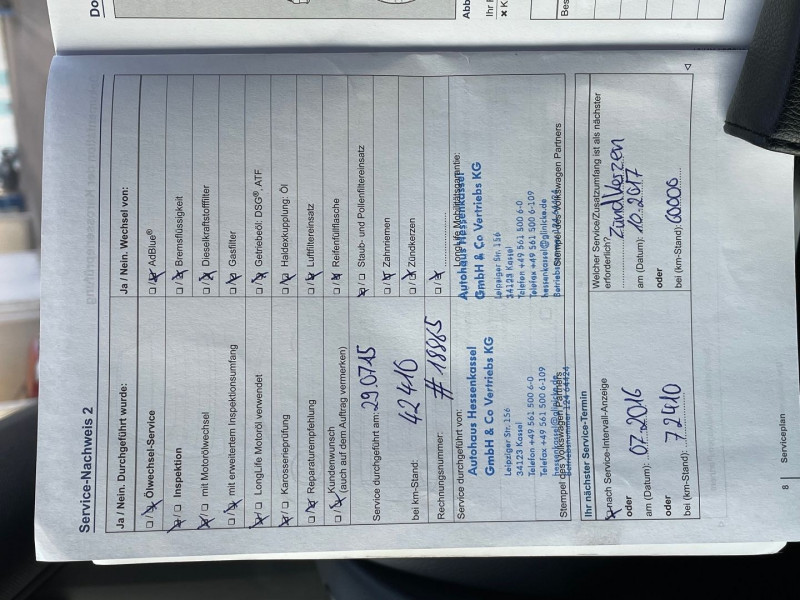 Service-Nachweis 2
Ja / Nein. Durchgeführt wurde:
Ölwechsel-Service
Inspektion
mit Motorölwechsel
mit erweitertem Inspektionsumfang
LongLife Motoröl verwendet
Karosserieprüfung
Reparaturempfehlung
Kundenwunsch
(auch auf dem Auftrag vermerken)
Service durchgeführt am: 29.0715
bei km-Stand: 42410
Rechnungsnummer: # 18865
Service durchgeführt von:
Autohaus Hessenkassel
GmbH & Co Vertriebs KG
Leipziger Str. 156
34123 Kassel
Telefon +49 561 500 6-0
Telefax +49 561 500 6-109
hessenkassel@glinicke.de
Stempel des Volkswagen Partners
Ja / Nein. Wechsel von:
AdBlue®
Bremsflüssigkeit
Dieselkraftstofffilter
Gasfilter
Getriebeöl: DSG®, ATF
Haldexkupplung: Öl
Luftfiltereinsatz
Reifenfüllflasche
Staub- und Pollenfiltereinsatz
Zahnriemen
Zündkerzen
LongLife Mobilitätsgarantie:
Autohaus Hessenkassel
GmbH & Co Vertriebs KG
Leipziger Str. 156
34123 Kassel
Telefon +49 561 500 6-0
Telefax +49 561 500 6-109
hessenkassel@glinicke.de
Stempel des Volkswagen Partners
Ihr nächster Service-Termin
nach Service-Intervall-Anzeige
oder
am (Datum): 07.2016
oder
bei (km-Stand): 72410
Welcher Service/Zusatzumfang ist als nächster
erforderlich? Zündkerzen
am (Datum): 10.2017
oder
bei (km-Stand): 60000
8 Serviceplan